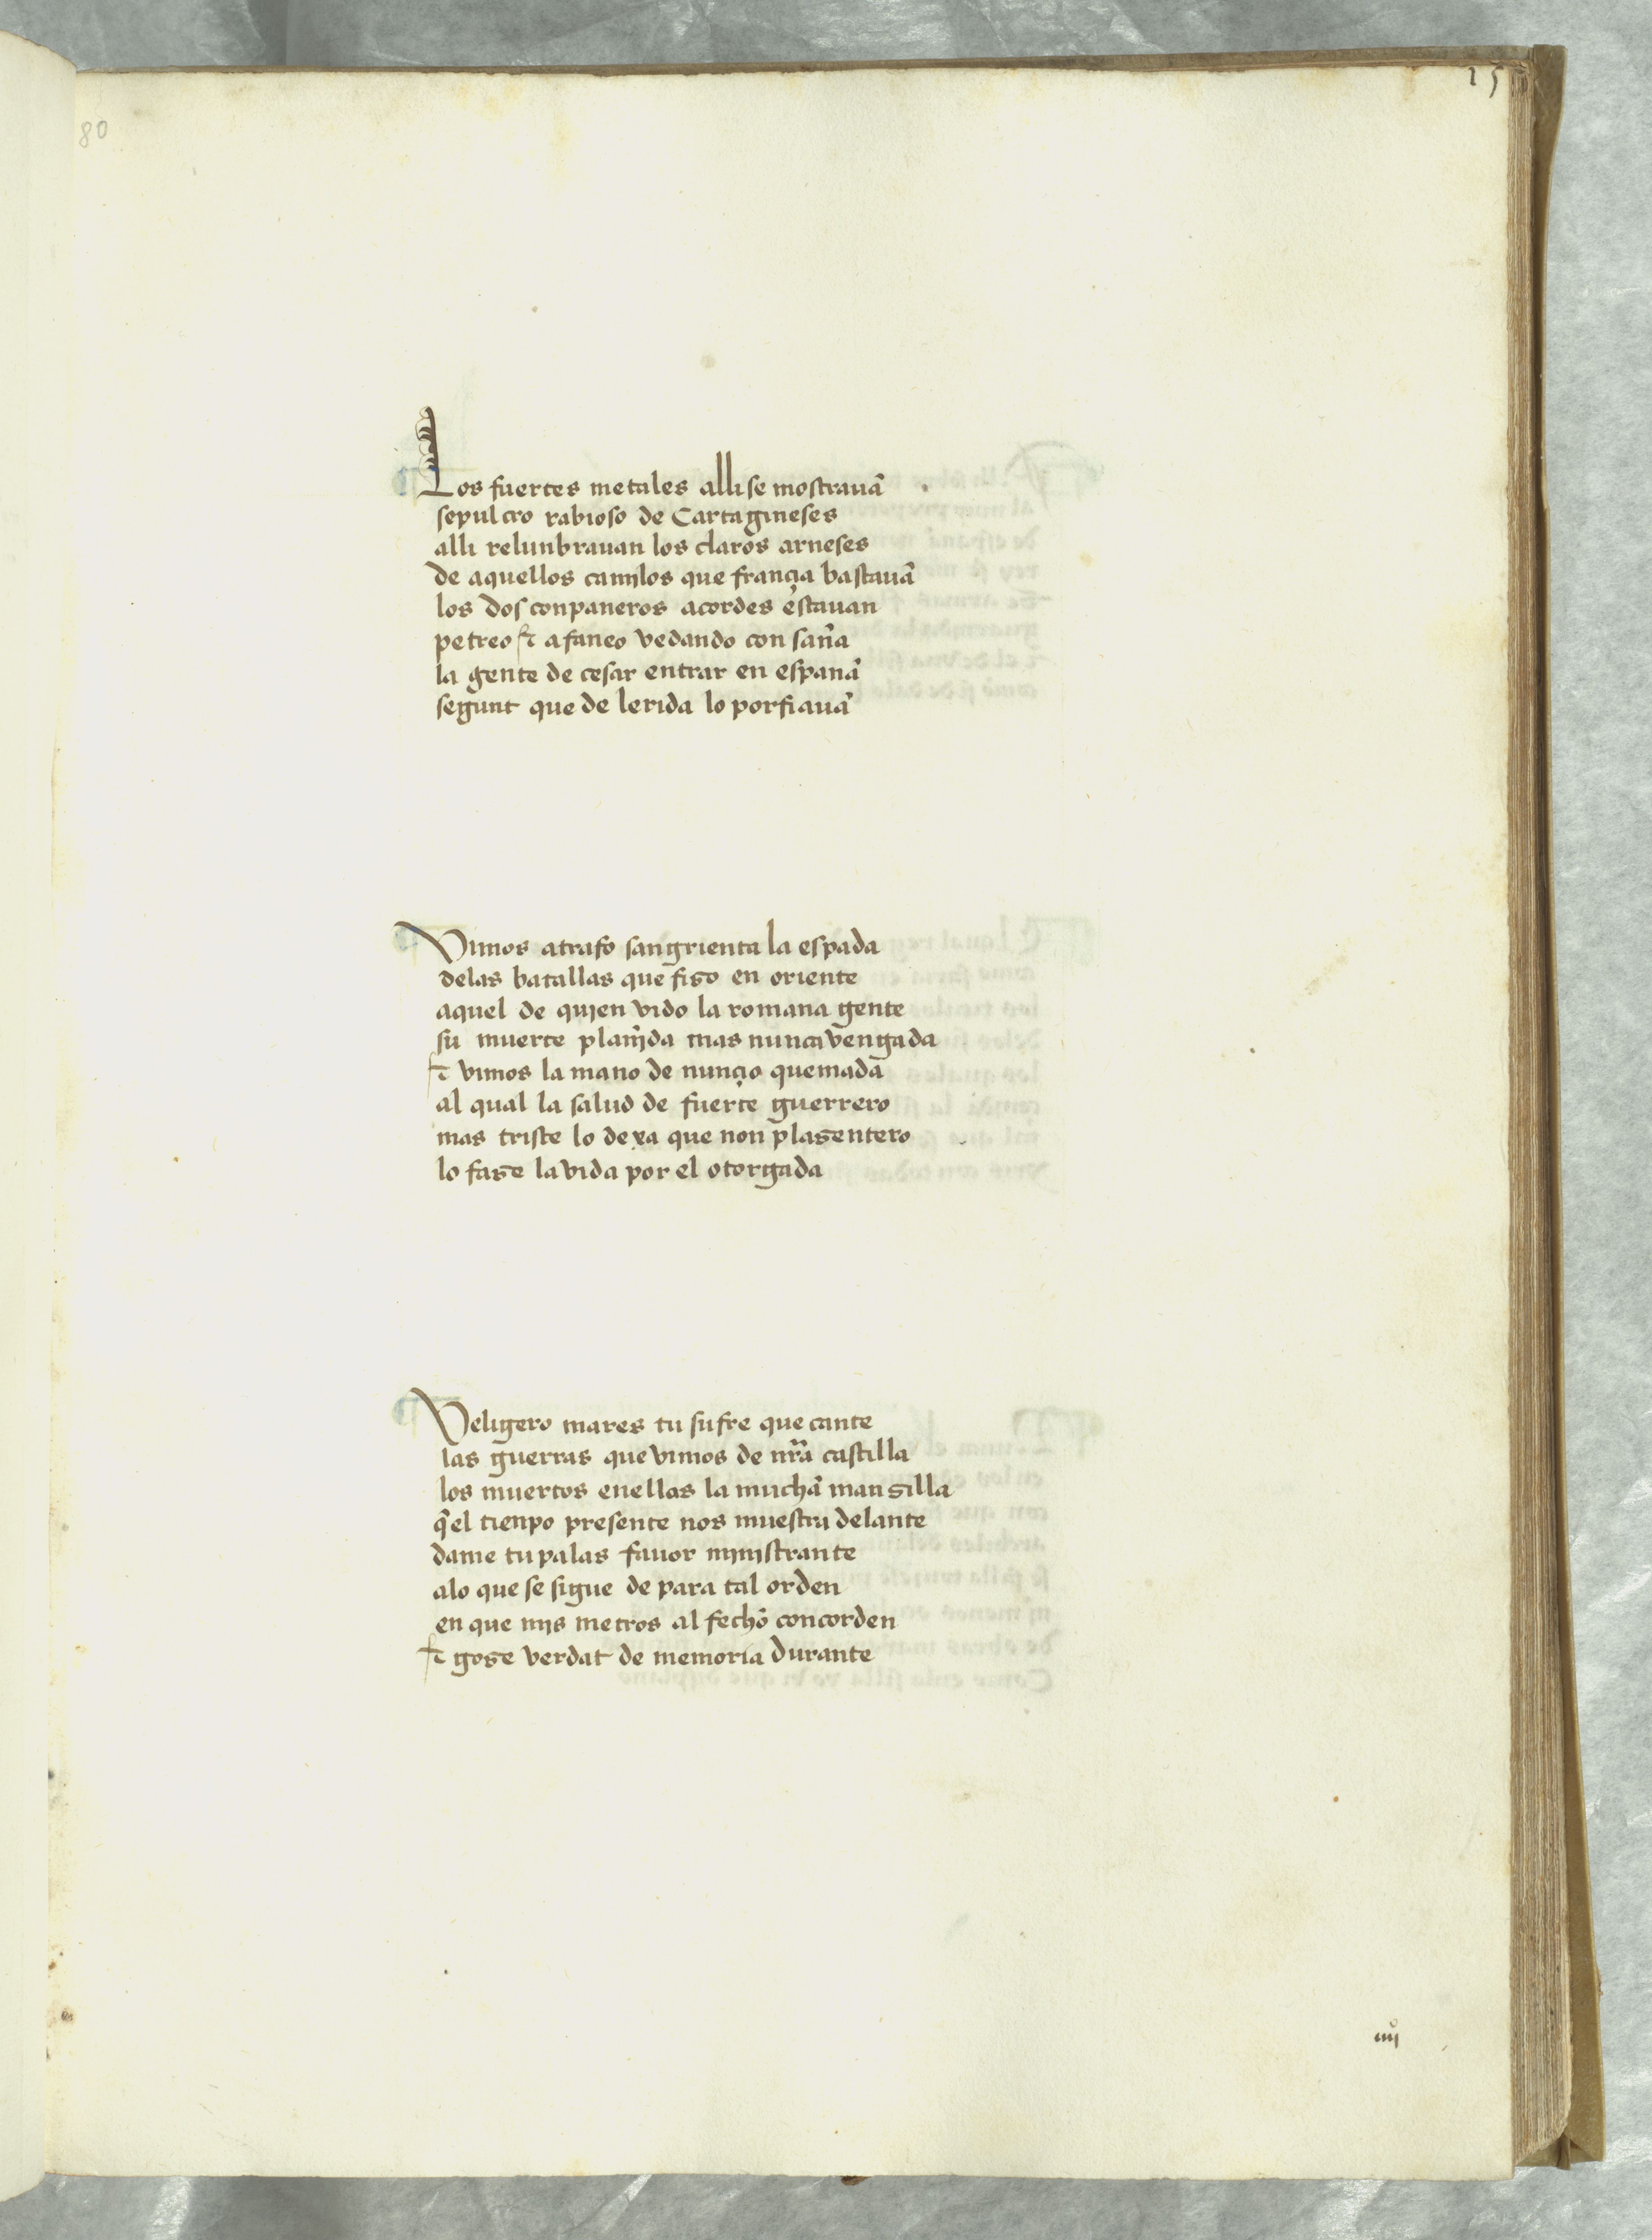 25
80
Los fuertes metales alli se mostrauã
sepulcro rabioso de Cartagineses
alli relunbrauan los claros arneses
de aquellos camjlos que françia bastauã
los dos conpaneros acordes estauan
petreo ⁊ afaneo vedando con saña
la gente de cesar entrar en espanã
segunt que de lerida lo porfiauã
Vimos atraso sangrienta la espada
delas batallas que fizo en oriente
aquel de qujen vido la romana gente
su muerte planjda mas nunca vengada
⁊ vimos la mano de nunçio quemada
al qual la salud de fuerte guerrero
mas triste lo dexa que non plazentero
lo faze la vida por el otorgada
Veligero mares tu sufre que cante
las guerras que vimos de nrã castilla
los muertos enellas la muchã manzilla
q̃el tienpo presente nos muestra delante
dame tu palas fauor mjnjstrante
alo que se sigue de para tal orden
en que mjs metros al fechõ concorden
⁊ goze verdat de memoria durante
iiijº